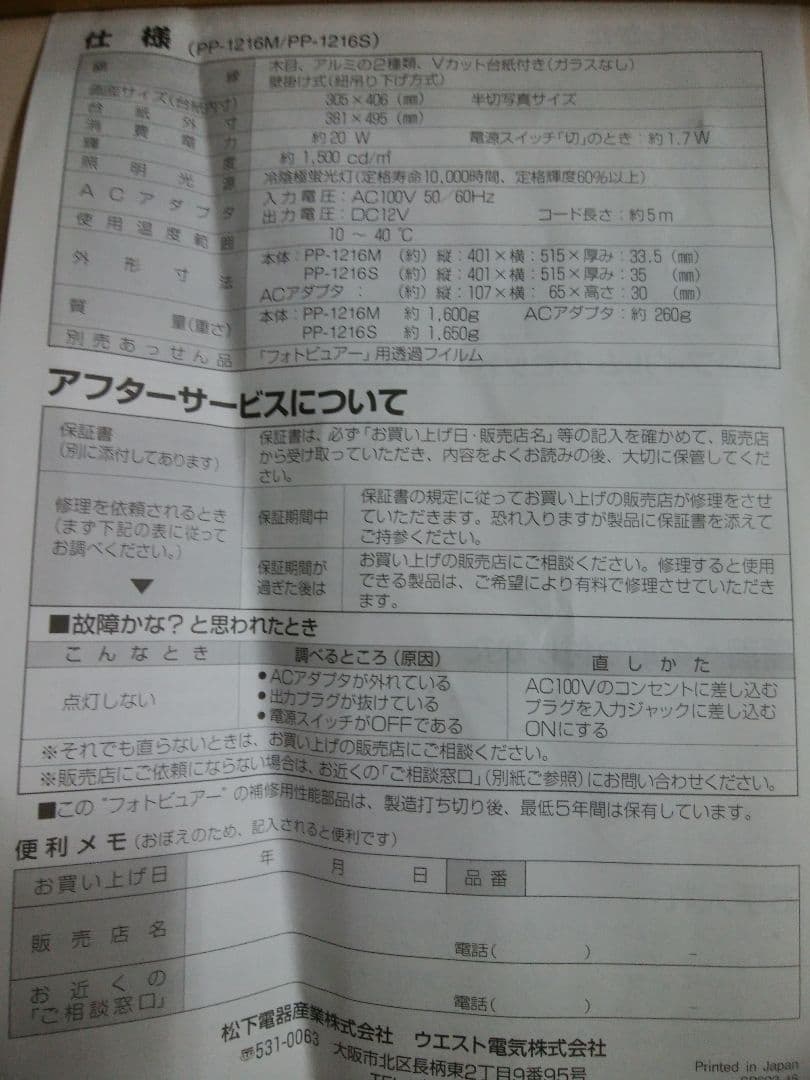 仕様 (PP-1216M/PP-1216S)
額縁 木目、アルミの2種類、Vカット台紙付き(ガラスなし)
壁掛け式(紐吊り下げ方式)
画産サイズ(台紙内寸) 305×406 (㎜) 半切写真サイズ
台紙外寸 381×495 (㎜)
消費電力 約20 W 電源スイッチ「切」のとき:約1.7W
輝度 約1,500 cd/㎡
照明光源 冷陰極蛍光灯(定格寿命10,000時間、定格輝度60%以上)
ACアダプタ 入力電圧:AC100V 50/60Hz
出力電圧:DC12V コード長さ:約5m
使用温度範囲 10 ～ 40 ℃
外形寸法 本体:PP-1216M (約)縦:401×横:515×厚み:33.5 (㎜)
PP-1216S (約)縦:401×横:515×厚み:35 (㎜)
ACアダプタ: (約)縦:107×横: 65×高さ:30 (㎜)
質量(重さ) 本体:PP-1216M 約1,600g ACアダプタ:約260g
PP-1216S 約1,650g
別売あっせん品 「フォトビュアー」用透過フイルム
アフターサービスについて
保証書
(別に添付してあります)
保証書は、必ず「お買い上げ日・販売店名」等の記入を確かめて、販売店
から受け取っていただき、内容をよくお読みの後、大切に保管してくだ
さい。
修理を依頼されるとき
(まず下記の表に従って
お調べください。)
▼
保証期間中
保証書の規定に従ってお買い上げの販売店が修理をさせ
ていただきます。恐れ入りますが製品に保証書を添えて
ご持参ください。
保証期間が
過ぎた後は
お買い上げの販売店にご相談ください。修理すると使用
できる製品は、ご希望により有料で修理させていただき
ます。
■故障かな?と思われたとき
こんなとき 調べるところ(原因) 直しかた
点灯しない
●ACアダプタが外れている
●出力プラグが抜けている
●電源スイッチがOFFである
AC100Vのコンセントに差し込む
プラグを入力ジャックに差し込む
ONにする
※それでも直らないときは、お買い上げの販売店にご相談ください。
※販売店にご依頼にならない場合は、お近くの「ご相談窓口」(別紙ご参照)にお問い合わせください。
■この"フォトビュアー"の補修用性能部品は、製造打ち切り後、最低5年間は保有しています。
便利メモ(おぼえのため、記入されると便利です)
お買い上げ日 年 月 日 品番
販売店名 電話( ) －
お近くの
「ご相談窓口」 電話( ) －
松下電器産業株式会社 ウエスト電気株式会社
〒531-0063 大阪市北区長柄東2丁目9番95号
Printed in Japan